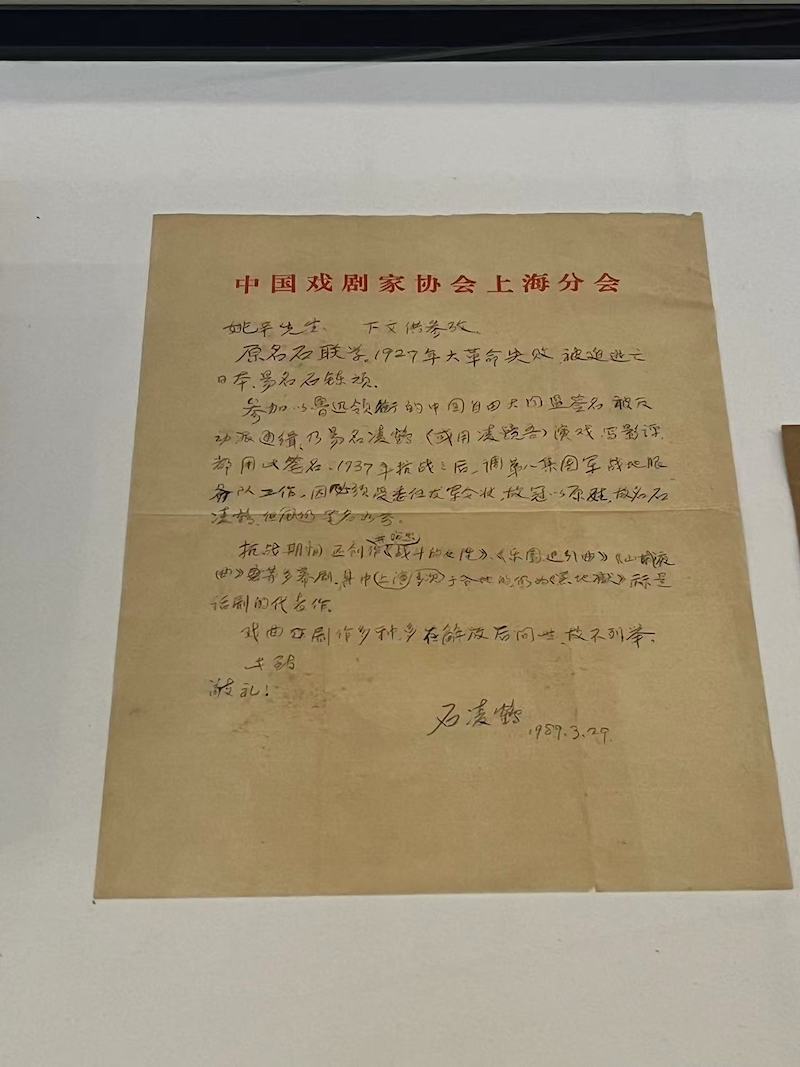 中国戏剧家协会上海分会
姚平先生: 下文供参考.
原名石联学。1927年大革命失败 被迫逃亡
日本,易名石炼顽.
参加以鲁迅领衔的中国自由大同盟签名 被反
动派通缉,乃易名凌鹤 (或用凌鹤吾) 演戏,写影评,
都用此笔名. 1937年抗战之后, 调第八集团军战地服
务队工作, 因必须受委任发军令状, 故冠以原姓, 故名石
凌鹤,
抗战期间还创作《战斗的女性》、《乐园进行曲》《山城夜
曲》等多幕剧, 其中 上演 于各地的,仍为《黑地狱》 亦是
话剧的代表作.
戏曲 剧作多种,多在解放后问世, 故不列举.
此致
敬礼!
石凌鹤 1989.3.29.